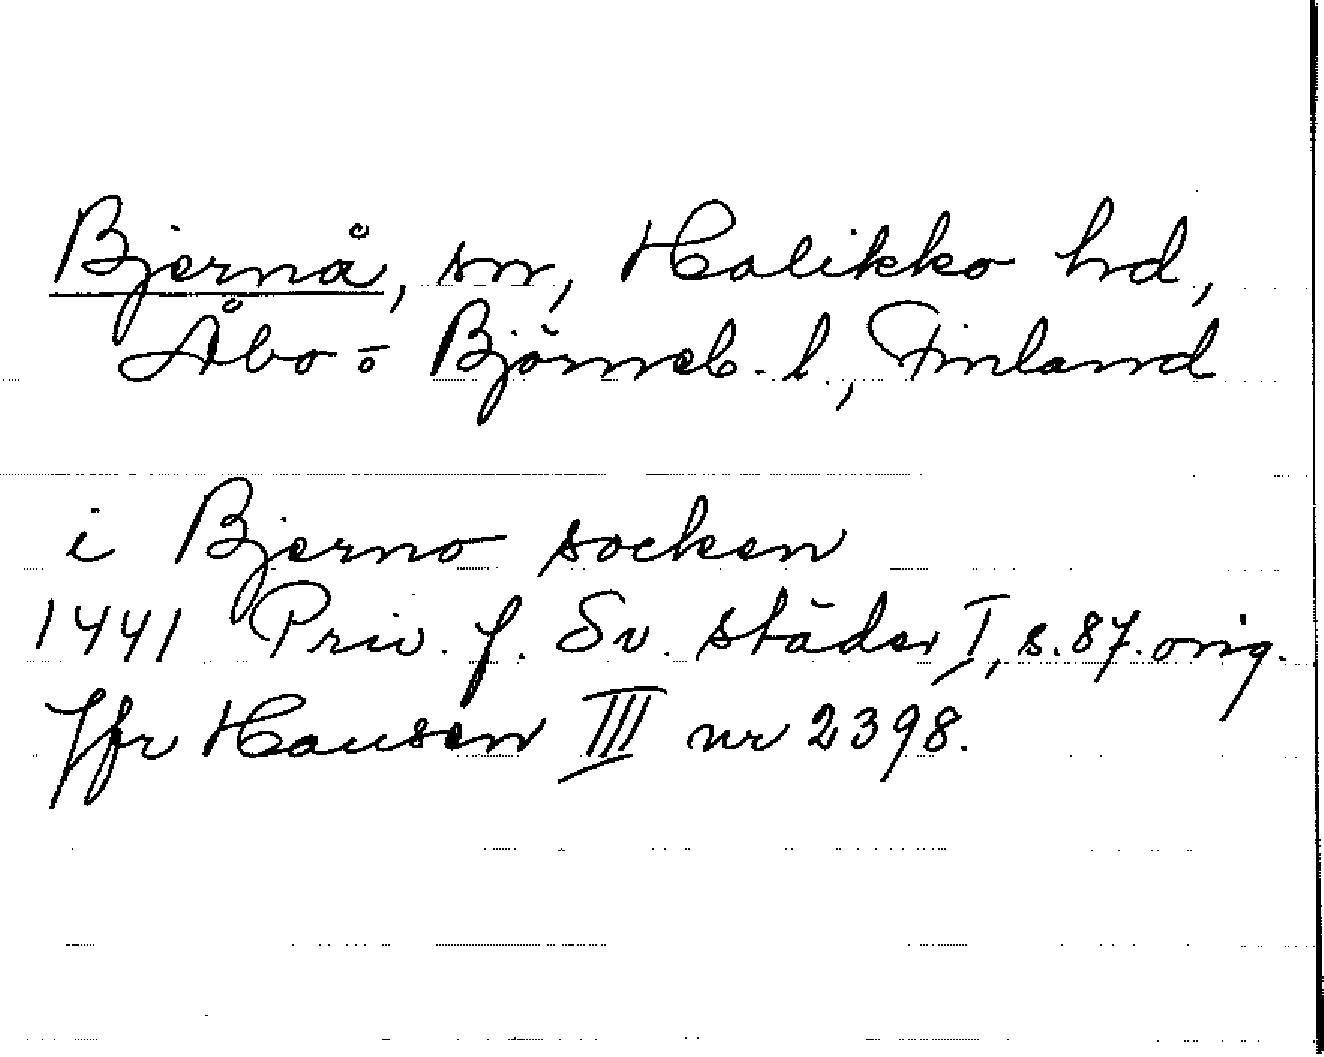 Bjernå, sn, Halikko hd,
Åbo o Björneb. l., Finland
i Bjerno socken
1441 Priv. f. Sv. städer I, s. 87. orig.
Jfr Hausen III nr 2398.